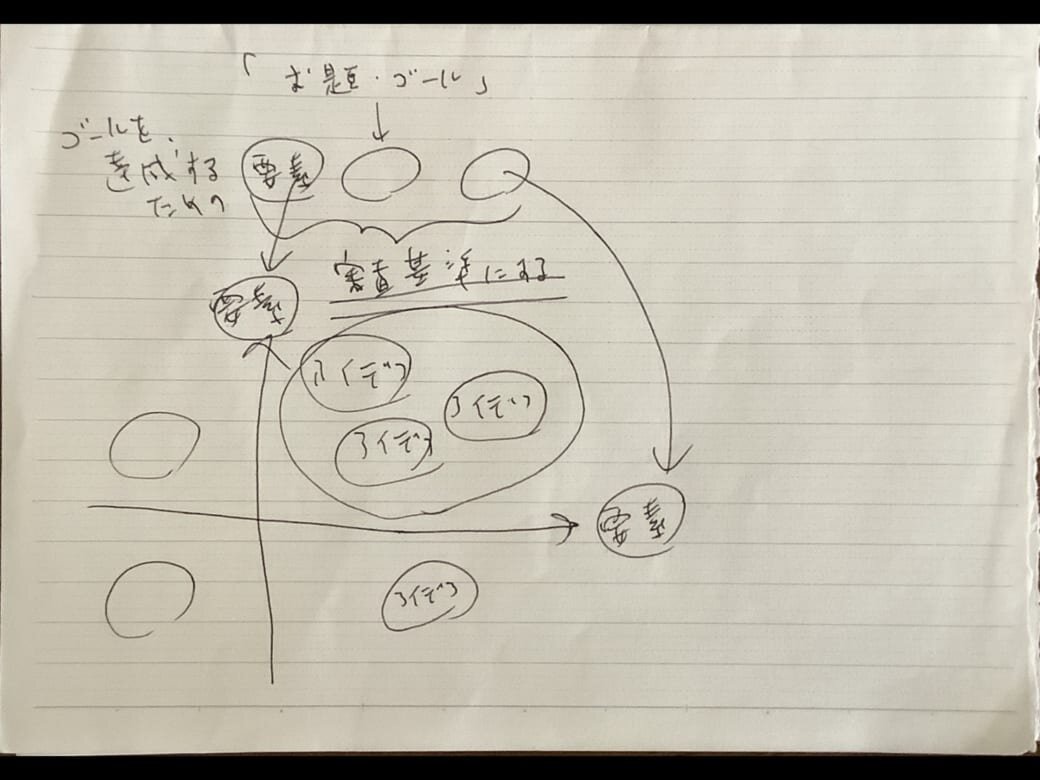 「お題・ゴール」
ゴールを
達成する
ための
要素
審査基準にする
要素
アイデア
アイデア
アイデア
要素
アイデア